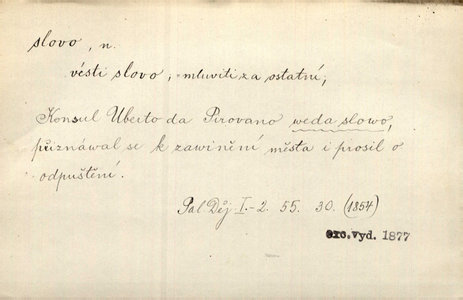 slovo, n.
vésti slovo, - mluviti za ostatní;
Konsul Uberto da Pirovano weda slowo,
přiznáwal se k zawinění města i prosil o
odpuštění.
Pal. Děj. I.-2. 55. 30. (1854)
exc. vyd. 1877